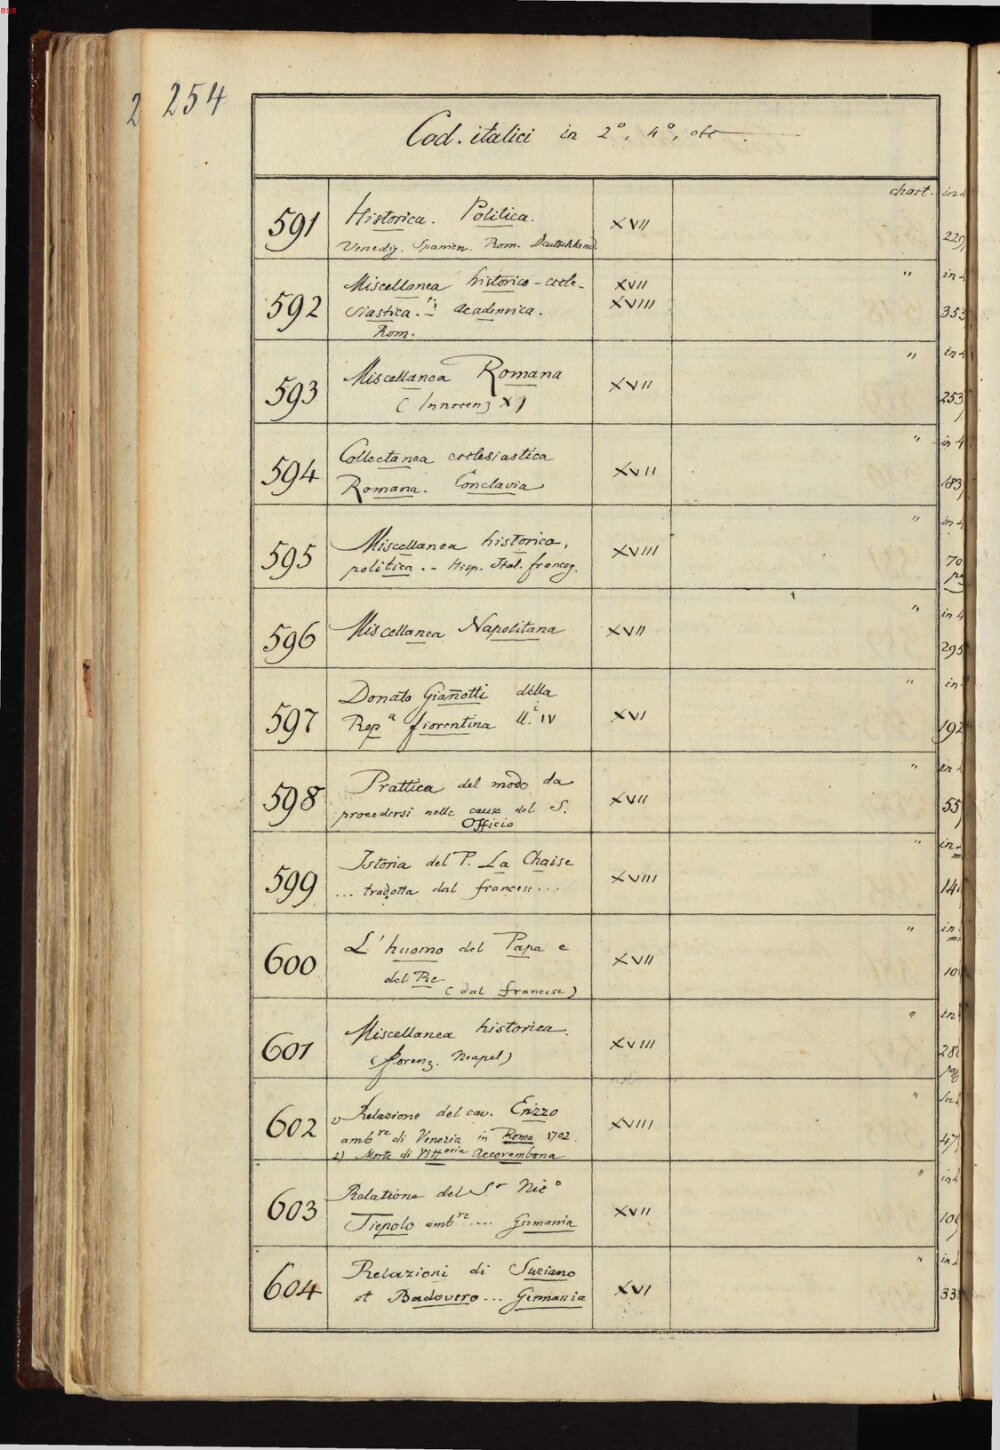 BSB
2 254
Cod. italici in 2°, 4°, obl
chart. in 4
591 Historica. Politica. XVII
Venedig. Spanien. Rom. Deutschland. 225
592 Miscellanea historico-eccle- XVII " in 4
siastica. academica. XVIII 353
Rom.
593 Miscellanea Romana XVII " in 4
(Innocenz XI) 253
594 Collectanea ecclesiastica XVII " in 4
Romana. Conclavia 183
595 Miscellanea historica, XVIII " in 4
politica. - Hisp. Ital. francog. 70
pag
596 Miscellanea Napolitana XVII " in 4
295
597 Donato Giañotti della XVI " in
Repa fiorentina ll. i IV 192
598 Prattica del modo da XVII " in 4
procedersi nelle cause del S. 55
Officio
599 Istoria del P. La Chaise XVIII " in
... tradotta dal francese... 14
600 L'huomo del Papa e XVII " in
del Re (dal francese) 10
601 Miscellanea historica. XVIII " in
(florenz. Neapel) 28
pag
602 1) Relazione del cav. Erizzo XVIII " in
ambre di Venezia in Roma 1702. 47
2) Morte di Vittoria Accorembona
603 Relatione del Sr Nico XVII " in
Tiepolo ambre .... Germania 10
604 Relazioni di Suriano XVI " in
et Badovero... Germania 33